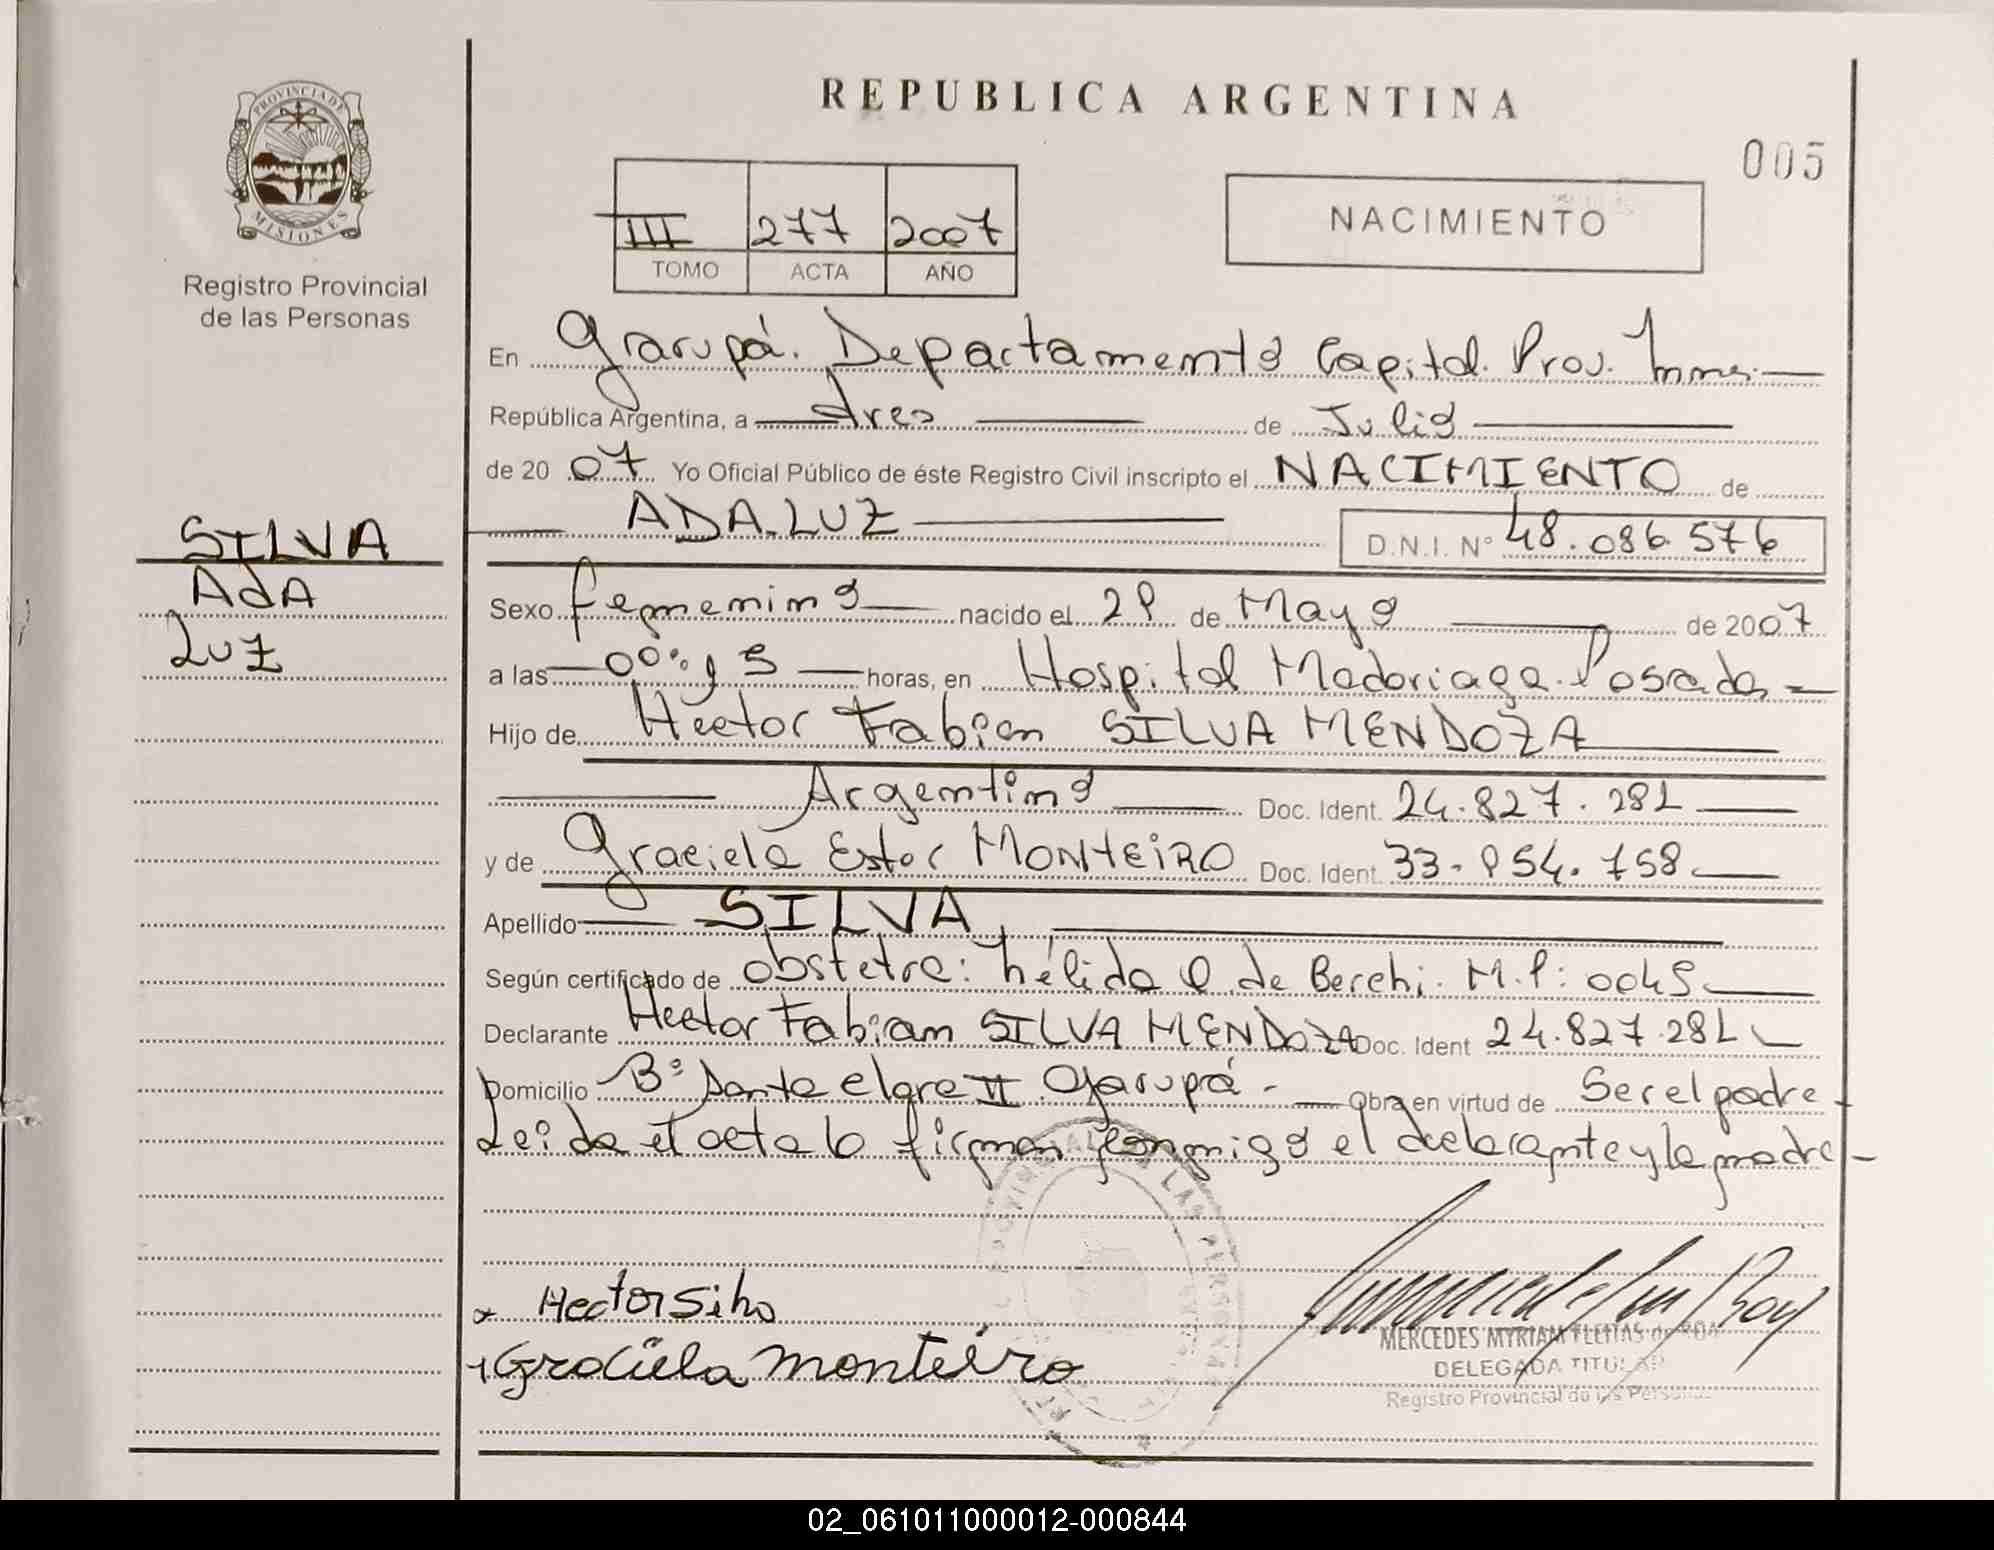 REPUBLICA ARGENTINA
005
PROVINCIA DE
MISIONES
Registro Provincial
de las Personas
III 277 2007
TOMO ACTA AÑO
NACIMIENTO
En Garupá. Departamento Capital. Prov. Mnes.
República Argentina, a tres de Julio
de 2007 Yo Oficial Público de éste Registro Civil inscripto el NACIMIENTO de
ADA LUZ D.N.I. Nº 48.086.576
SILVA
AdA
Luz
Sexo femenino nacido el 29 de Mayo de 2007
a las horas, en Hospital Madariaga. Posadas
Hijo de Hector Fabian SILVA MENDOZA
Argentino Doc. Ident. 24.827.281
y de Graciela Ester MONTEIRO Doc. Ident. 33.954.758
Apellido SILVA
Según certificado de obstetra: de Berchi. M.P: 0045
Declarante Hector Fabian SILVA MENDOZA Doc. Ident 24.827.281
Domicilio Bº Santa Clara II Garupá - Obra en virtud de Ser el padre
Leida el acta la firman conmigo el declarante y la madre
Hector Silva
Graciela monteiro
MERCEDES MYRIAM FLEITAS de ROA
DELEGADA TITULAR
Registro Provincial de las Personas
02_061011000012-000844